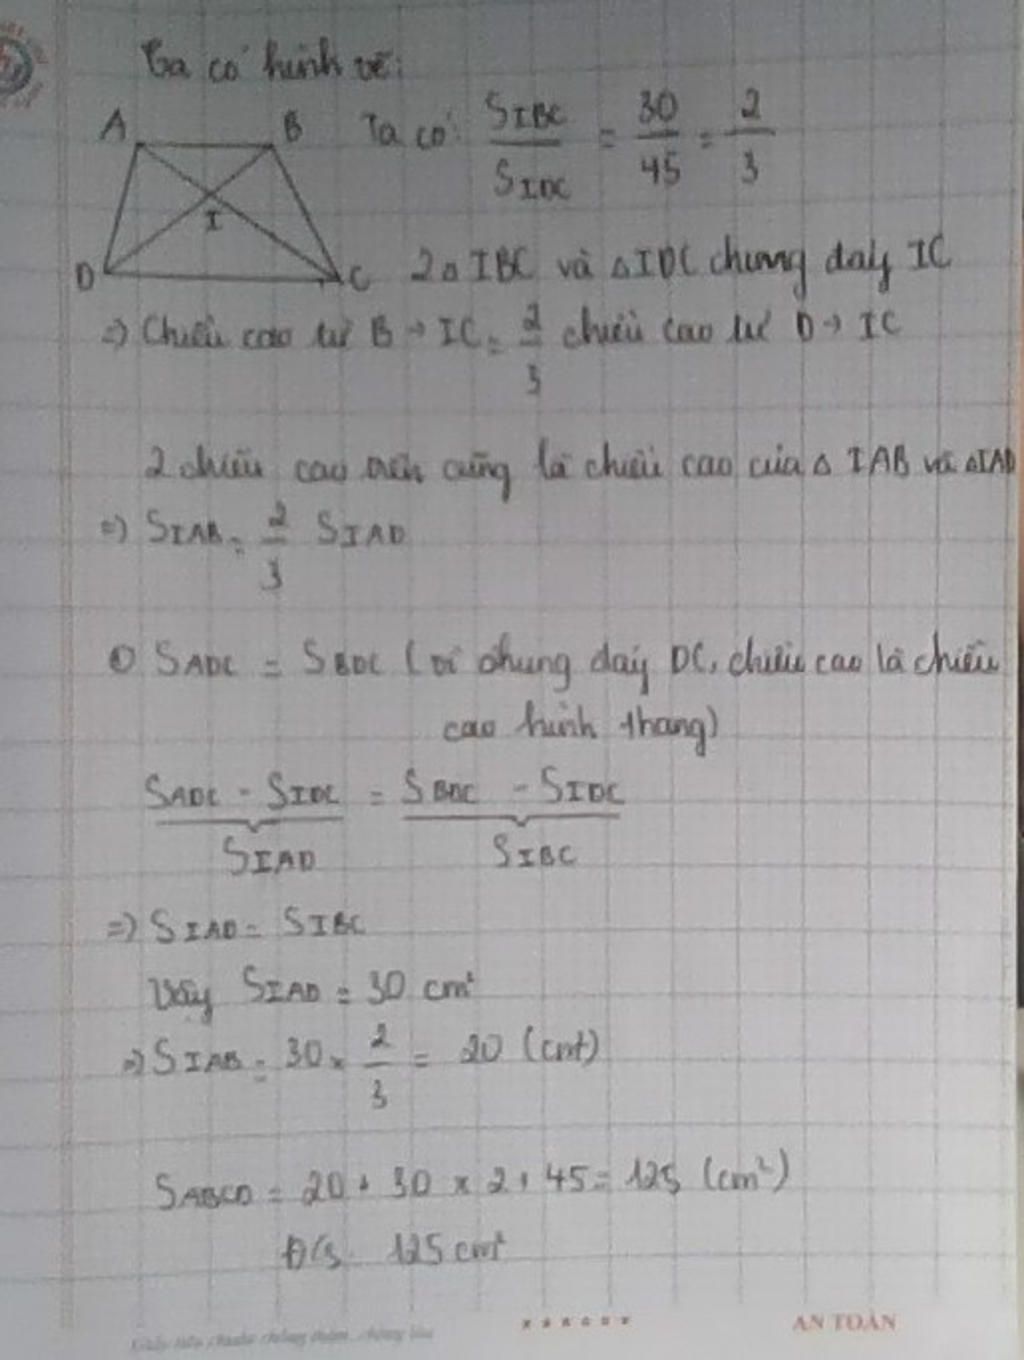 Ta có hình vẽ:
A B D C I
Ta có: S_IBC / S_IDC = 30/45 = 2/3
2△ IBC và △IDC chung đáy IC
=> Chiều cao từ B → IC = 2/3 chiều cao từ D → IC
2 chiều cao trên cũng là chiều cao của △ IAB và △IAD
=> S_IAB = 2/3 S_IAD
S_ADC = S_BDC (vì chung đáy DC, chiều cao là chiều
cao hình thang)
S_ADC - S_IDC = S_BDC - S_IDC
S_IAD S_IBC
=> S_IAD = S_IBC
Vậy S_IAD = 30 cm²
=> S_IAB = 30 × 2/3 = 20 (cm²)
S_ABCD = 20 + 30 × 2 + 45 = 125 (cm²)
Đ/s: 125 cm²
AN TOÀN